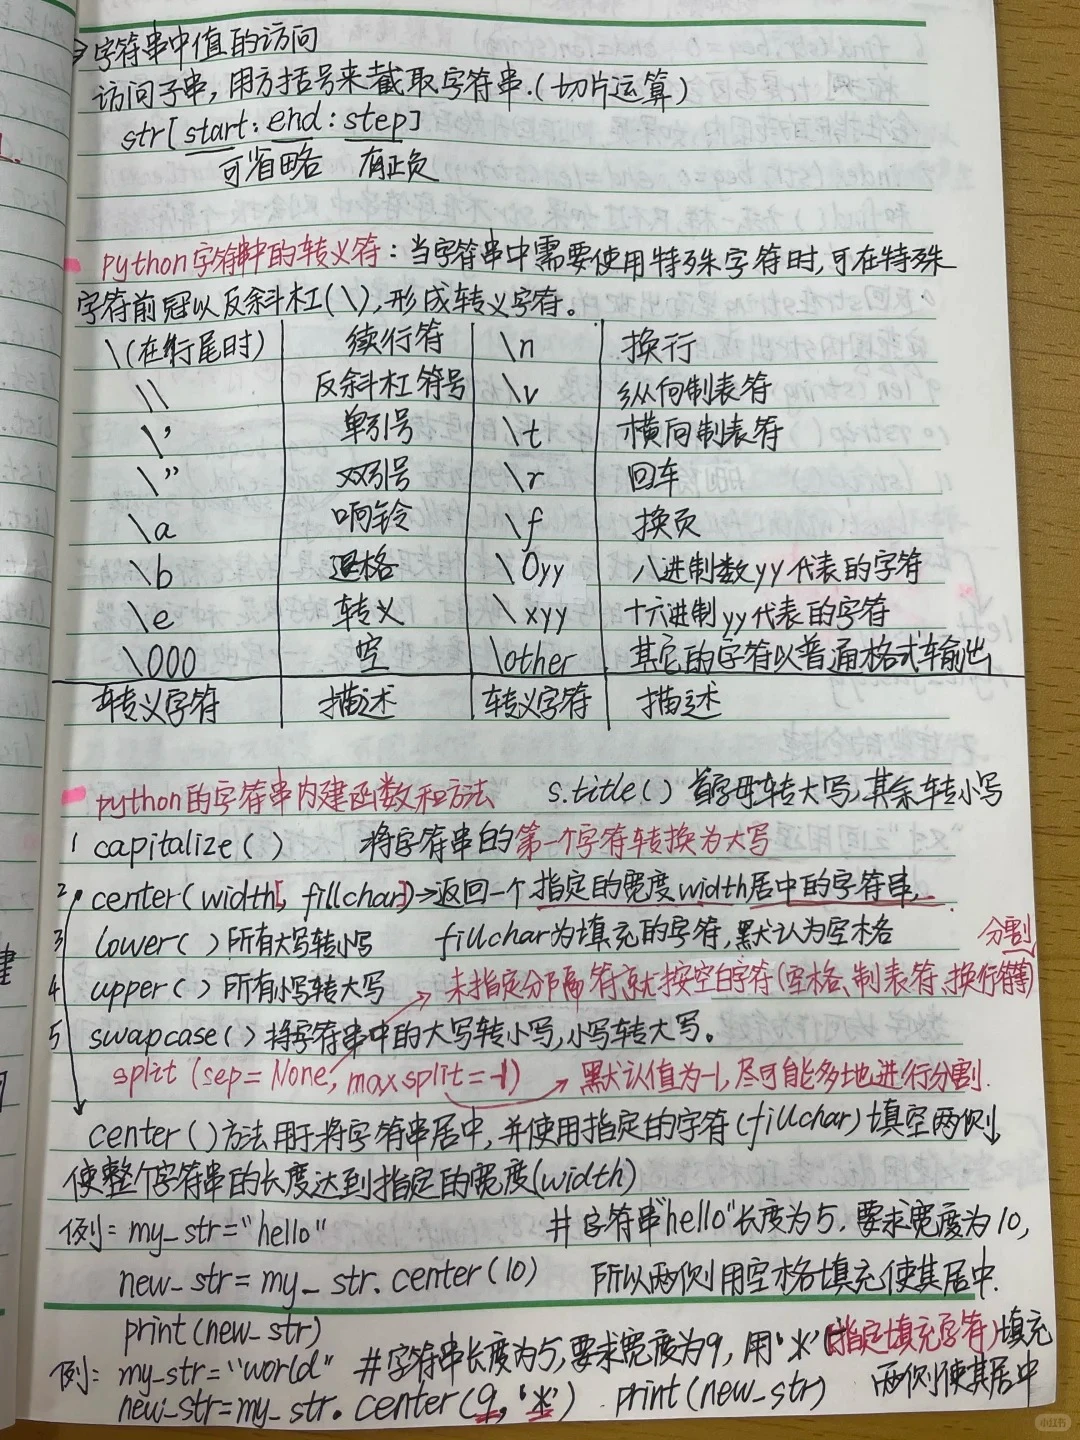 →字符串中值的访问
访问子串,用方括号来截取字符串.(切片运算)
str[start:end:step]
可省略 有正负
python字符串中的转义符:当字符串中需要使用特殊字符时,可在特殊
字符前冠以反斜杠(\),形成转义字符。
\(在行尾时) 续行符 \n 换行
\\ 反斜杠符号 \v 纵向制表符
\' 单引号 \t 横向制表符
\" 双引号 \r 回车
\a 响铃 \f 换页
\b 退格 \0yy 八进制数yy代表的字符
\e 转义 \xyy 十六进制yy代表的字符
\000 空 \other 其它的字符以普通格式输出
转义字符 描述 转义字符 描述
python的字符串内建函数和方法 s.title() 首字母转大写,其余转小写
1 capitalize() 将字符串的第一个字符转换为大写
2 center(width[, fillchar])→返回一个指定的宽度width居中的字符串,
3 lower()所有大写转小写 fillchar为填充的字符,默认为空格
分割
4 upper()所有小写转大写 未指定分隔符就按空白字符(空格、制表符、换行符等)
5 swapcase()将字符串中的大写转小写,小写转大写。
split(sep=None, maxsplit=-1) 默认值为-1,尽可能多地进行分割.
center()方法用于将字符串居中,并使用指定的字符(fillchar)填空两侧,
使整个字符串的长度达到指定的宽度(width)
例: my_str="hello" #字符串"hello"长度为5.要求宽度为10,
new_str=my_str.center(10) 所以两侧用空格填充使其居中.
print(new_str)
例: my_str="world" #字符串长度为5,要求宽度为9,用'*'(指定填充字符)填充
两侧使其居中
new_str=my_str.center(9,'*') print(new_str)
小红书